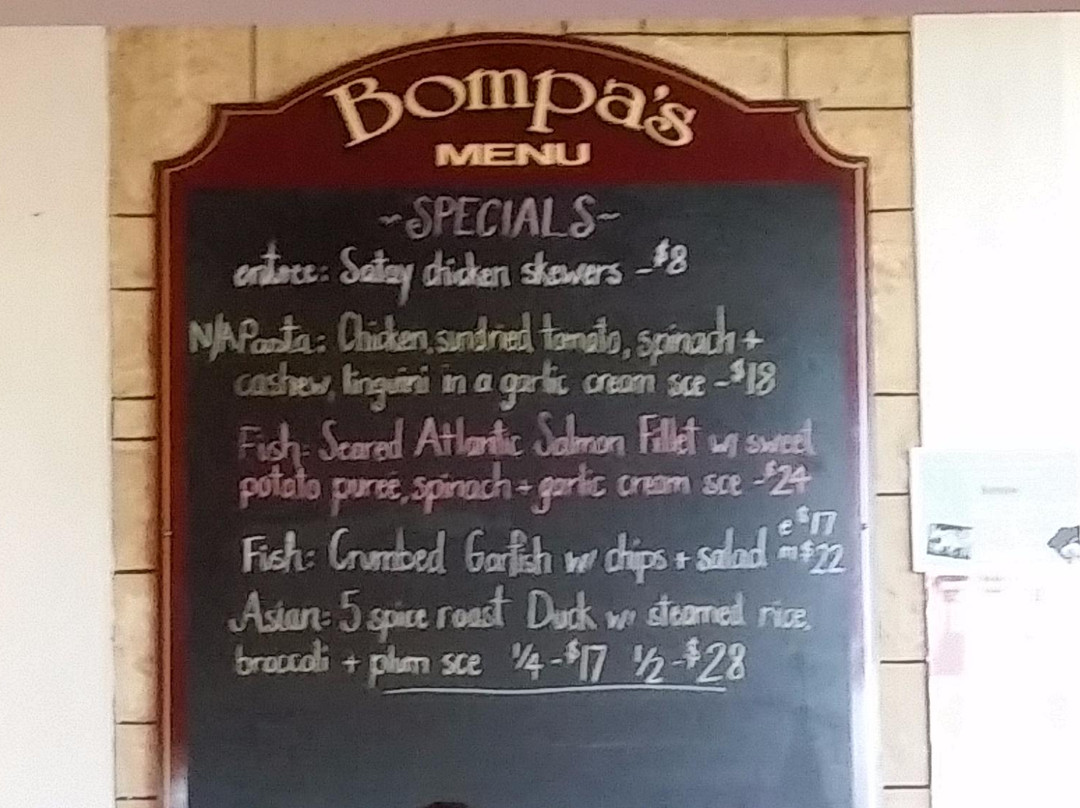 Bompa's
MENU
~SPECIALS~
entree: Satay chicken skewers - $8
N/A Pasta: Chicken, sundried tomato, spinach +
cashew, linguini in a garlic cream sce - $18
Fish: Seared Atlantic Salmon Fillet w/ sweet
potato pureé, spinach + garlic cream sce - $24
e $17
Fish: Crumbed Garfish w/ chips + salad m $22
Asian: 5 spice roast Duck w/ steamed rice,
broccoli + plum sce 1/4 - $17 1/2 - $28